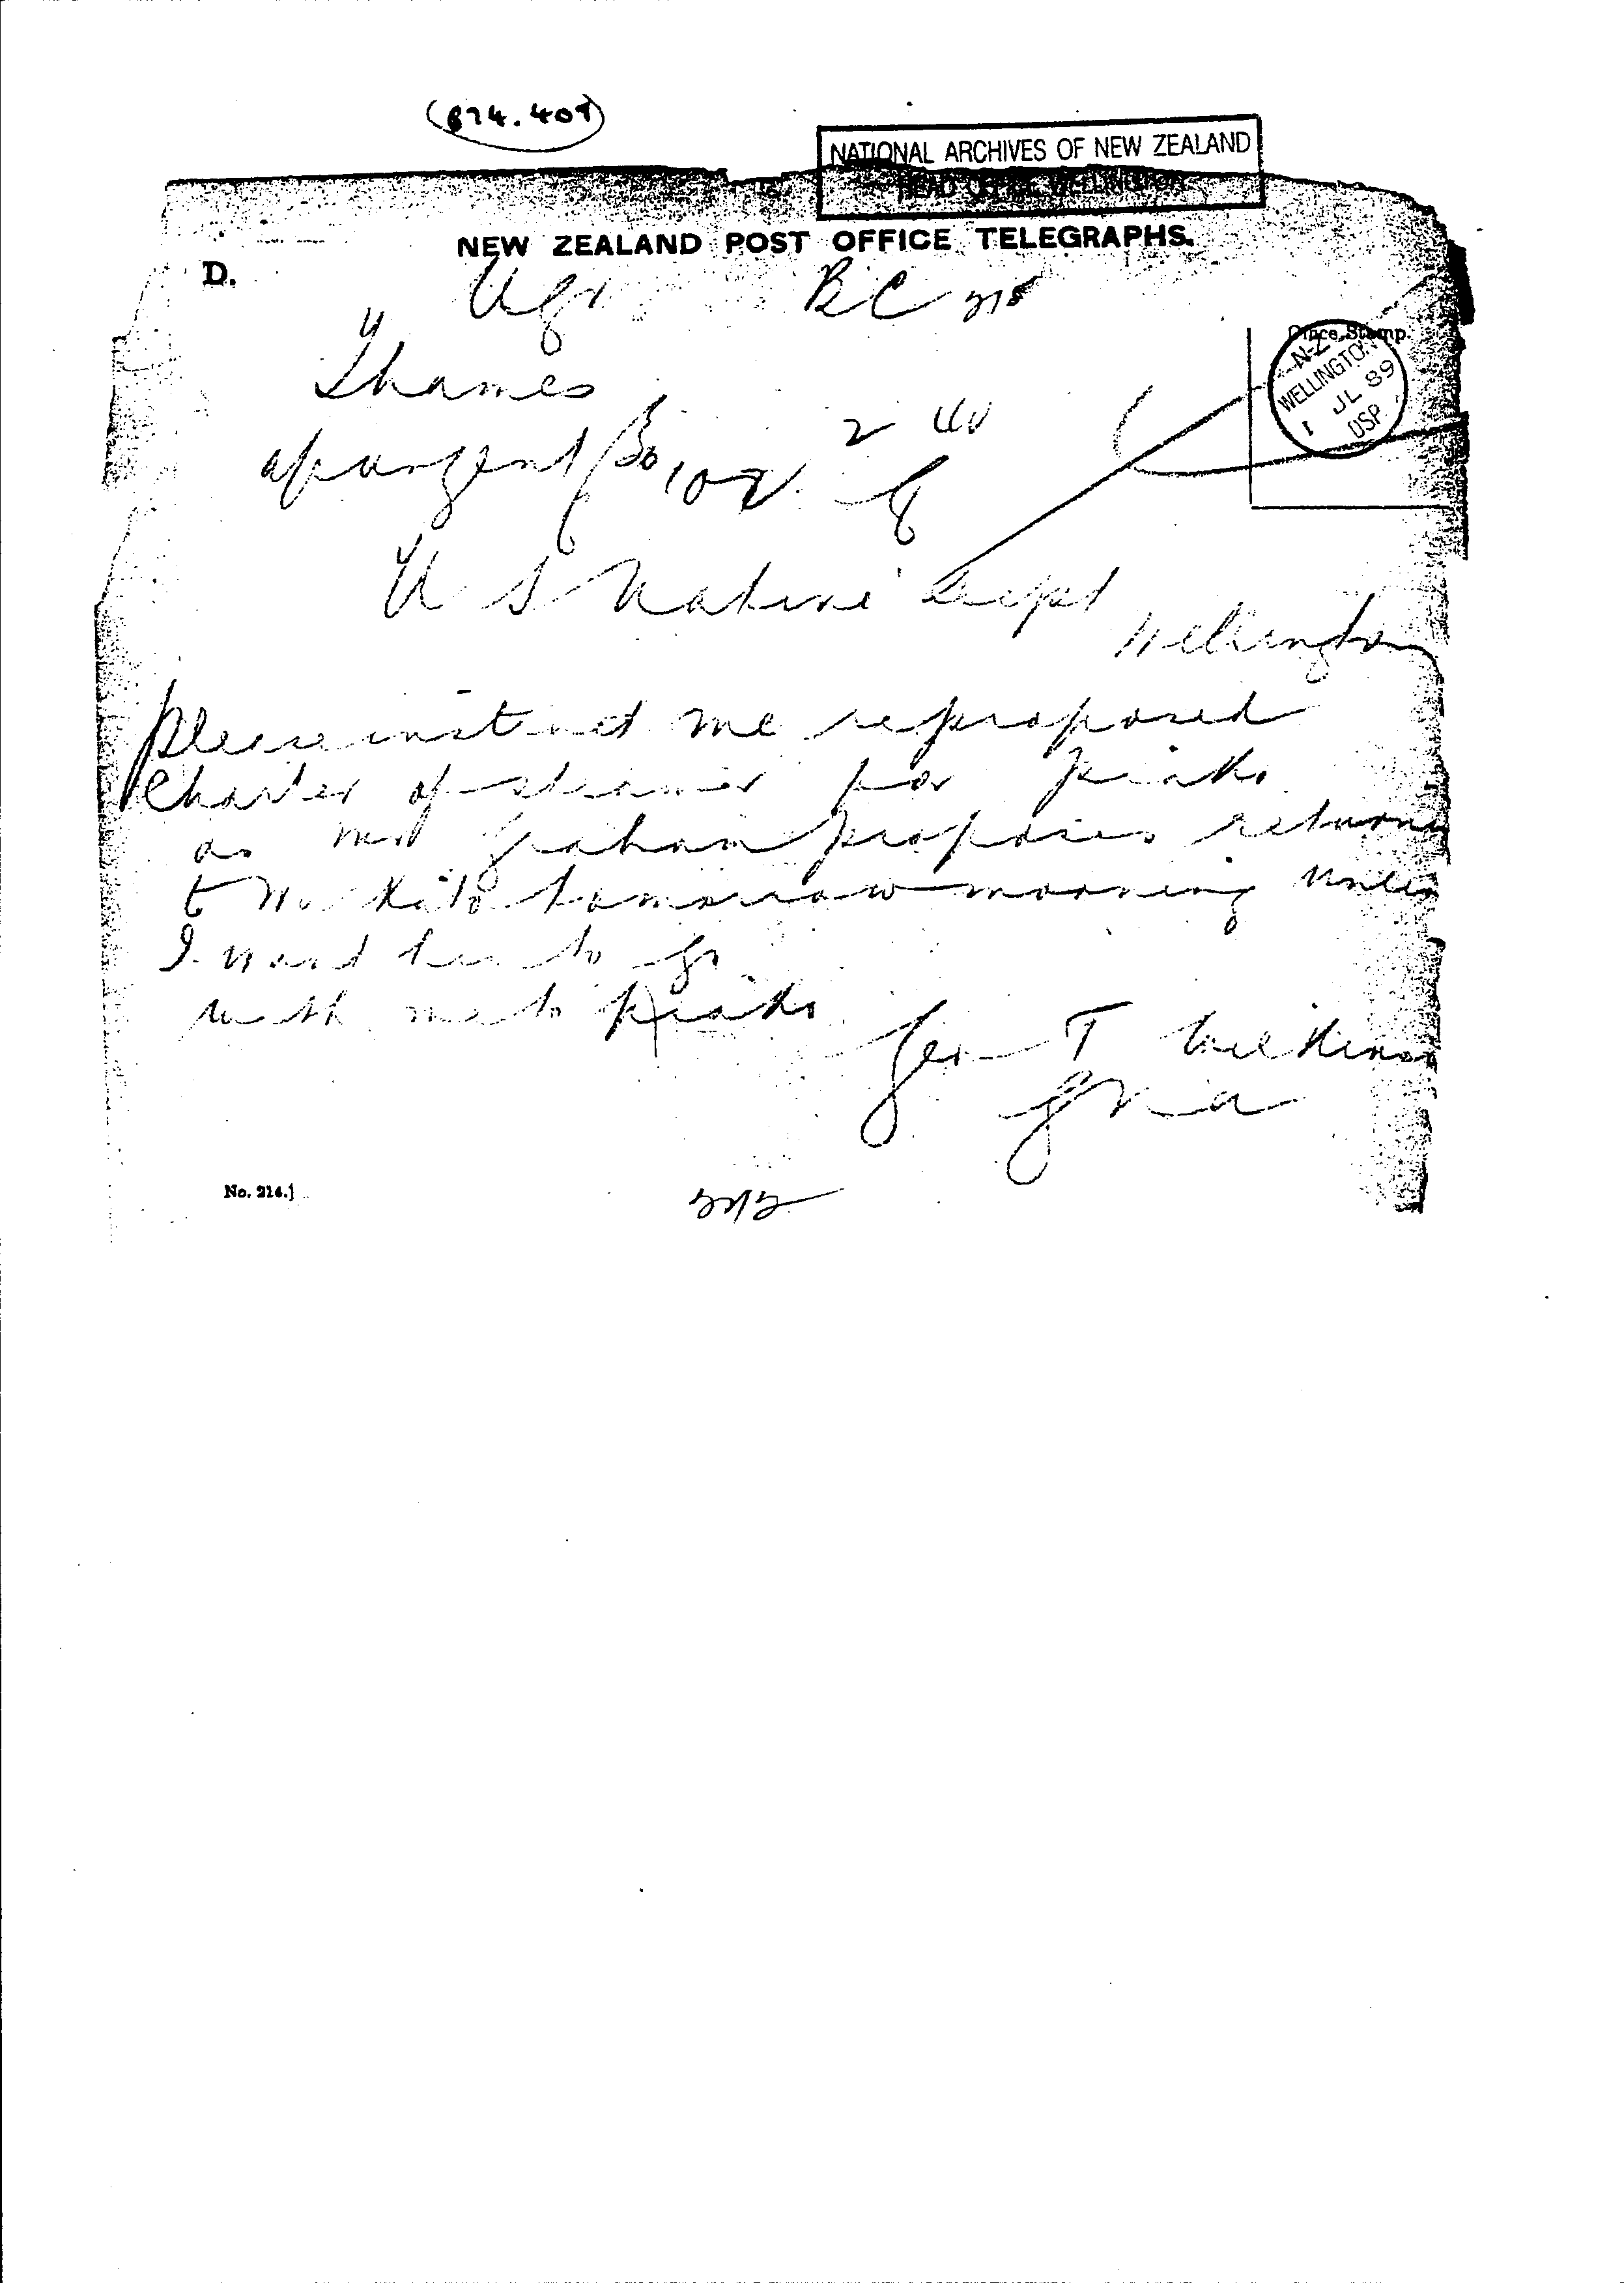 (874.409)
NATIONAL ARCHIVES OF NEW ZEALAND
HEAD OFFICE WELLINGTON
NEW ZEALAND POST OFFICE TELEGRAPHS.
D.
Ugt BC 215
Office Stamp.
N-Z
WELLINGTON
1 JL 89
USP
Thames
2 40
U S Native Dept
Wellington
Please instruct me reproposed
Charter of steamer for Piako
as Mrs Graham proposes returning
to Waikato tomorrow morning unless
I want her to go
with me to Piako
Geo T Wilkinson
G N a
No. 214.]